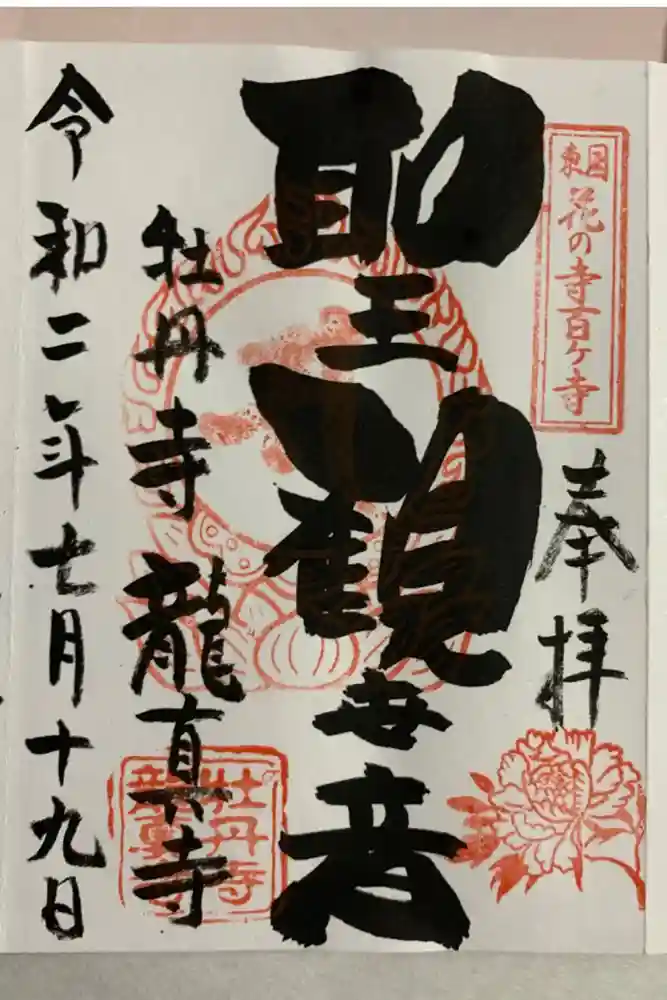 東国花の寺百ヶ寺
奉拝
聖観世音
牡丹寺 龍真寺
令和二年七月十九日
牡丹寺